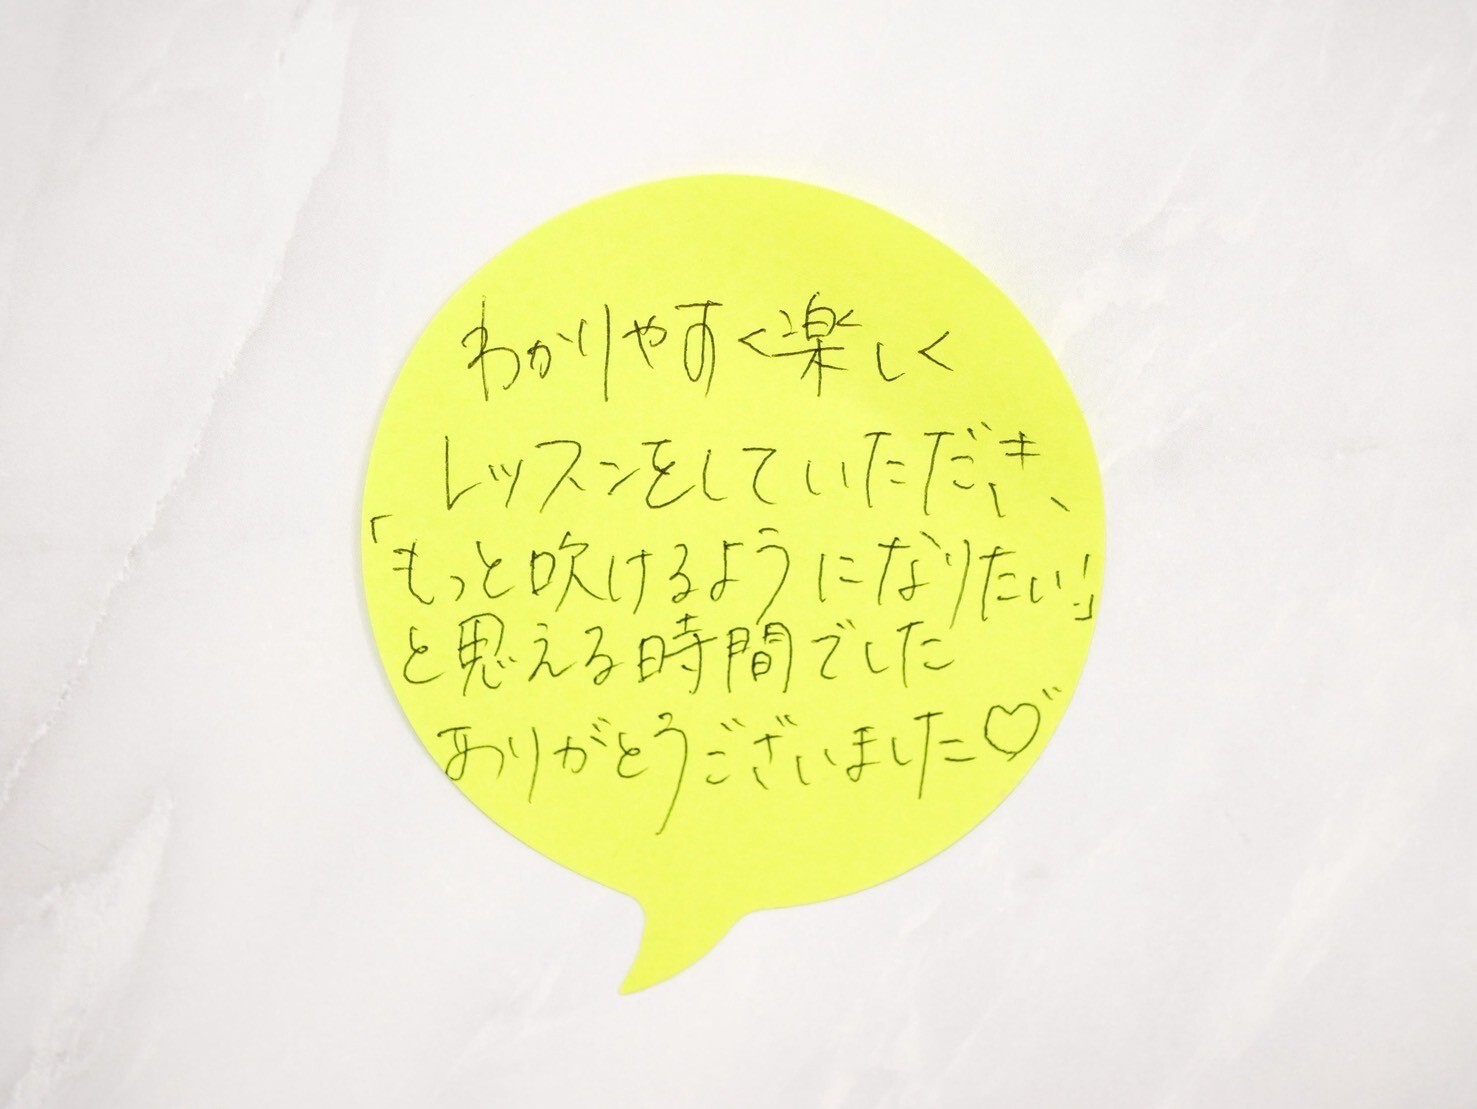 わかりやすく楽しく
レッスンをしていただき、
「もっと吹けるようになりたい!」
と思える時間でした
ありがとうございました♡